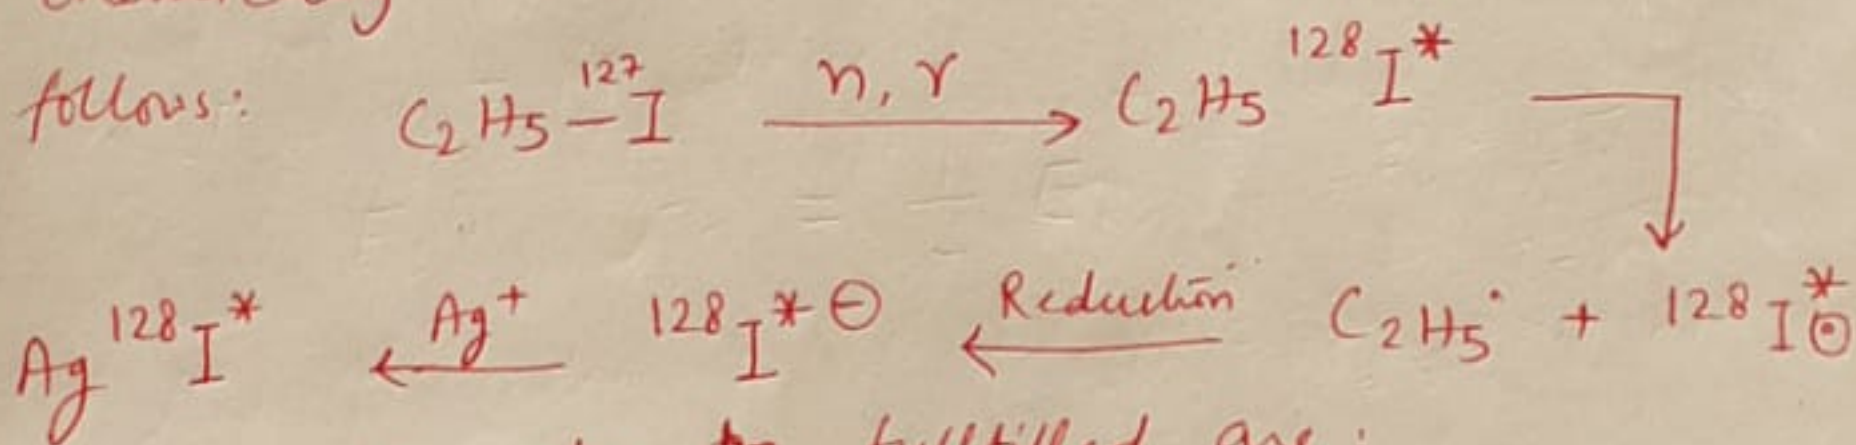 follows: C₂H₅–¹²⁷I n, γ → C₂H₅ ¹²⁸I*
Ag ¹²⁸I* ← Ag⁺ ¹²⁸I*⊖ ← Reduction C₂H₅• + ¹²⁸I*⊙
fulfilled are: